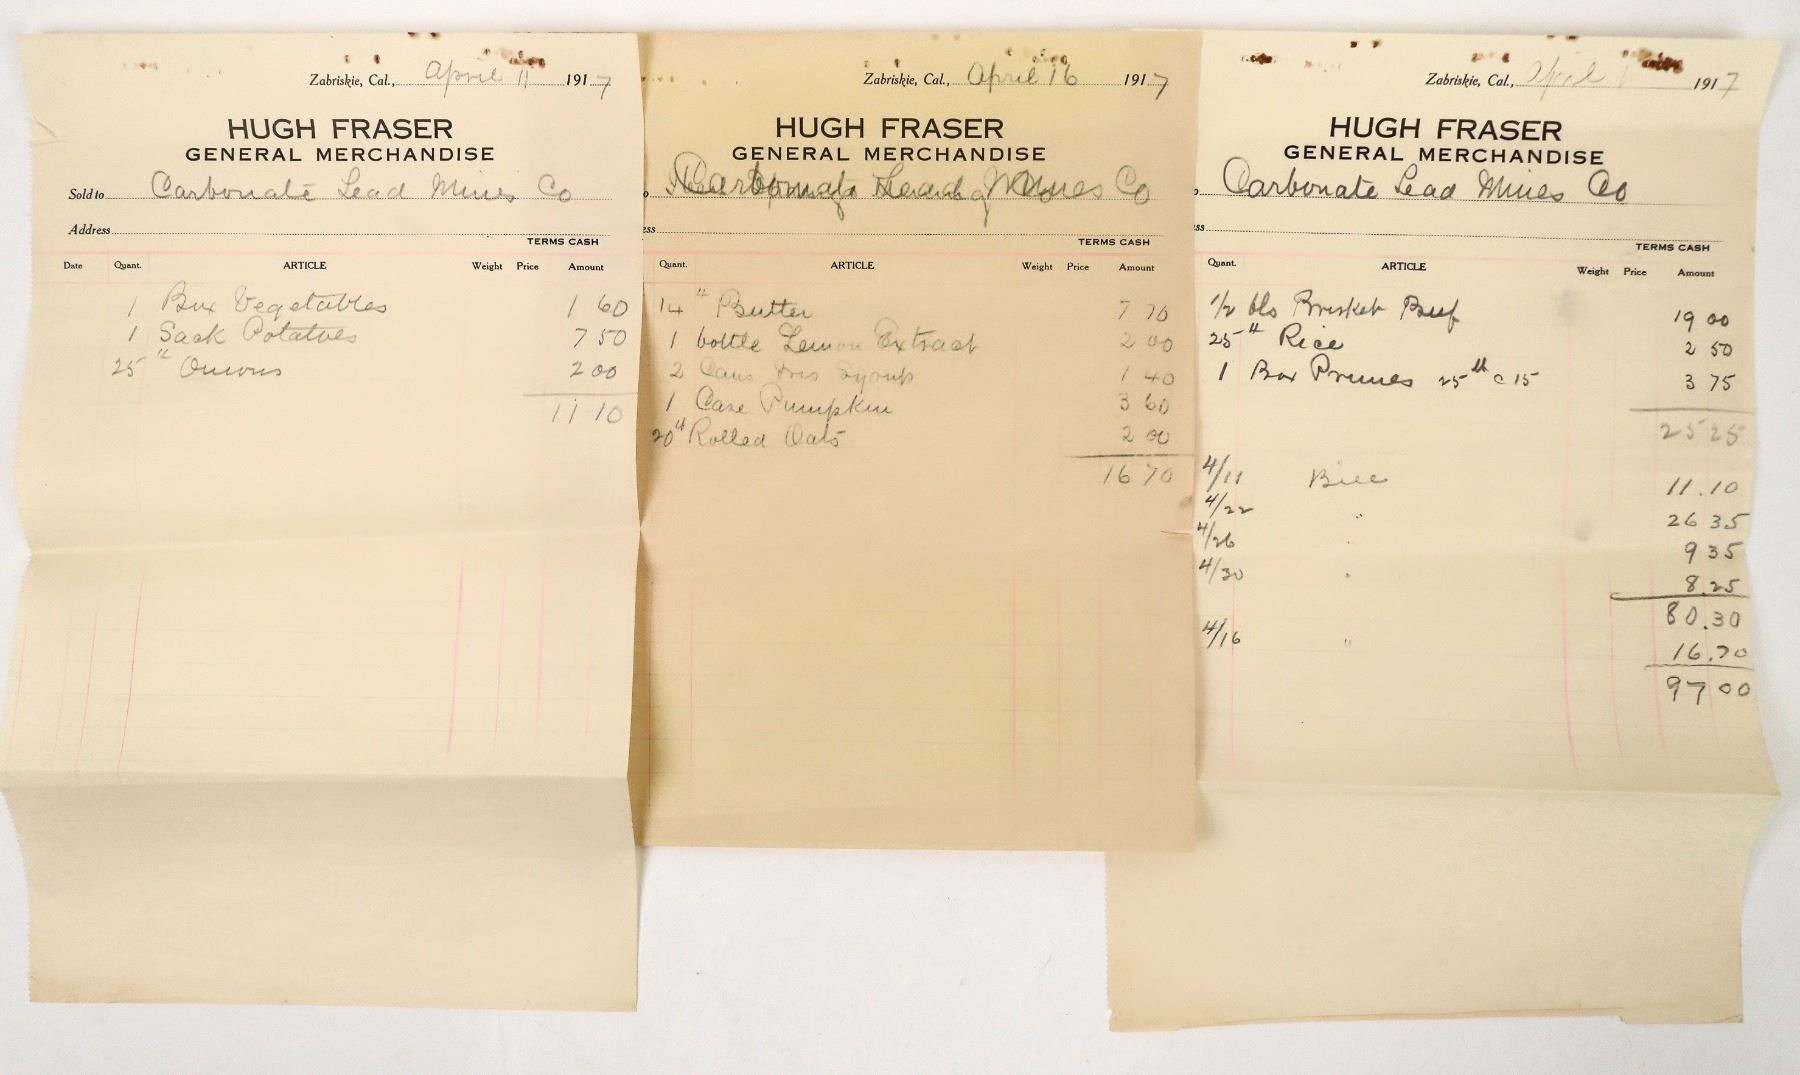 Zabriskie, Cal., April 11 1917
HUGH FRASER
GENERAL MERCHANDISE
Sold to Carbonate Lead Mines Co
Address
TERMS CASH
Date Quant. ARTICLE Weight Price Amount
1 Box Vegetables 1 60
1 Sack Potatoes 7 50
25 " Onions 2 00
11 10
Zabriskie, Cal., April 16 1917
HUGH FRASER
GENERAL MERCHANDISE
o Carbonate Lead Mines Co
ess
TERMS CASH
Quant. ARTICLE Weight Price Amount
14 " Butter 7 70
1 bottle Lemon Extract 2 00
2 Cans Syrup 1 40
1 Case Pumpkin 3 60
20 " Rolled Oats 2 00
16 70
Zabriskie, Cal., April 1 1917
HUGH FRASER
GENERAL MERCHANDISE
o Carbonate Lead Mines Co
ss
TERMS CASH
Quant. ARTICLE Weight Price Amount
1/2 bls Brisket Beef 19 00
25 " Rice 2 50
1 Box Prunes 25 " c 15 3 75
25 25
4/11 Bill 11.10
4/22 " 26 35
4/26 " 9 35
4/30 " 8.25
80.30
4/16 " 16.70
97 00